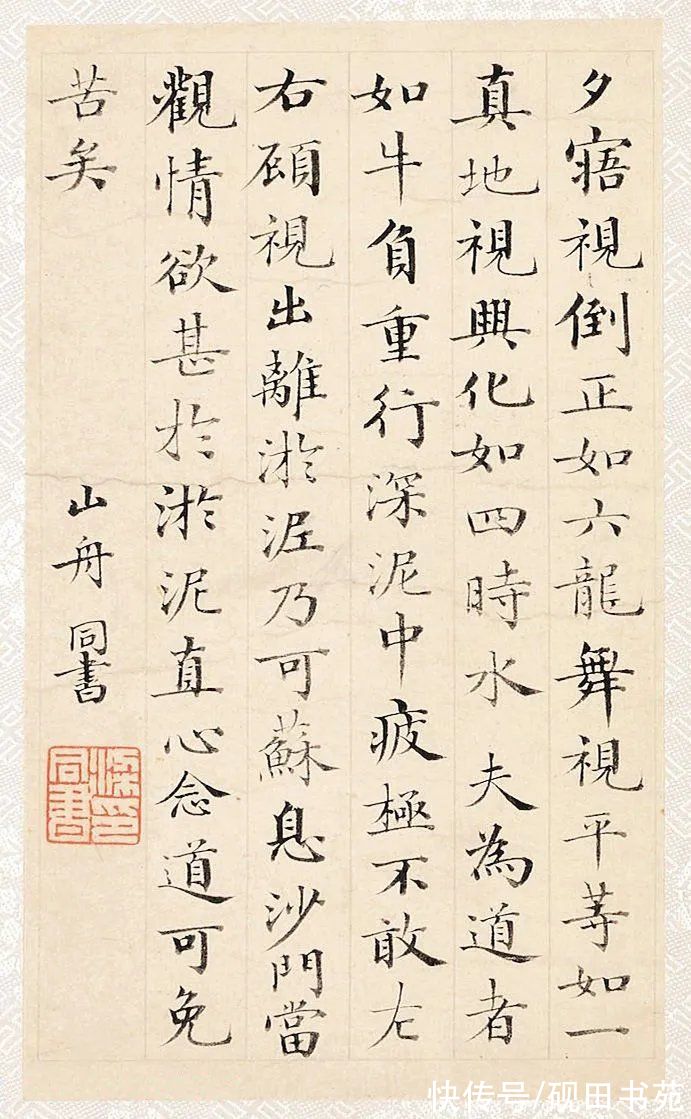 夕寤視倒正如六龍舞視平等如一
真地視興化如四時水 夫為道者
如牛負重行深泥中疲極不敢左
右顧視出離淤泥乃可蘇息沙門當
觀情欲甚於淤泥直心念道可免
苦矣
山舟同書
梁同書印
快传号/砚田书苑